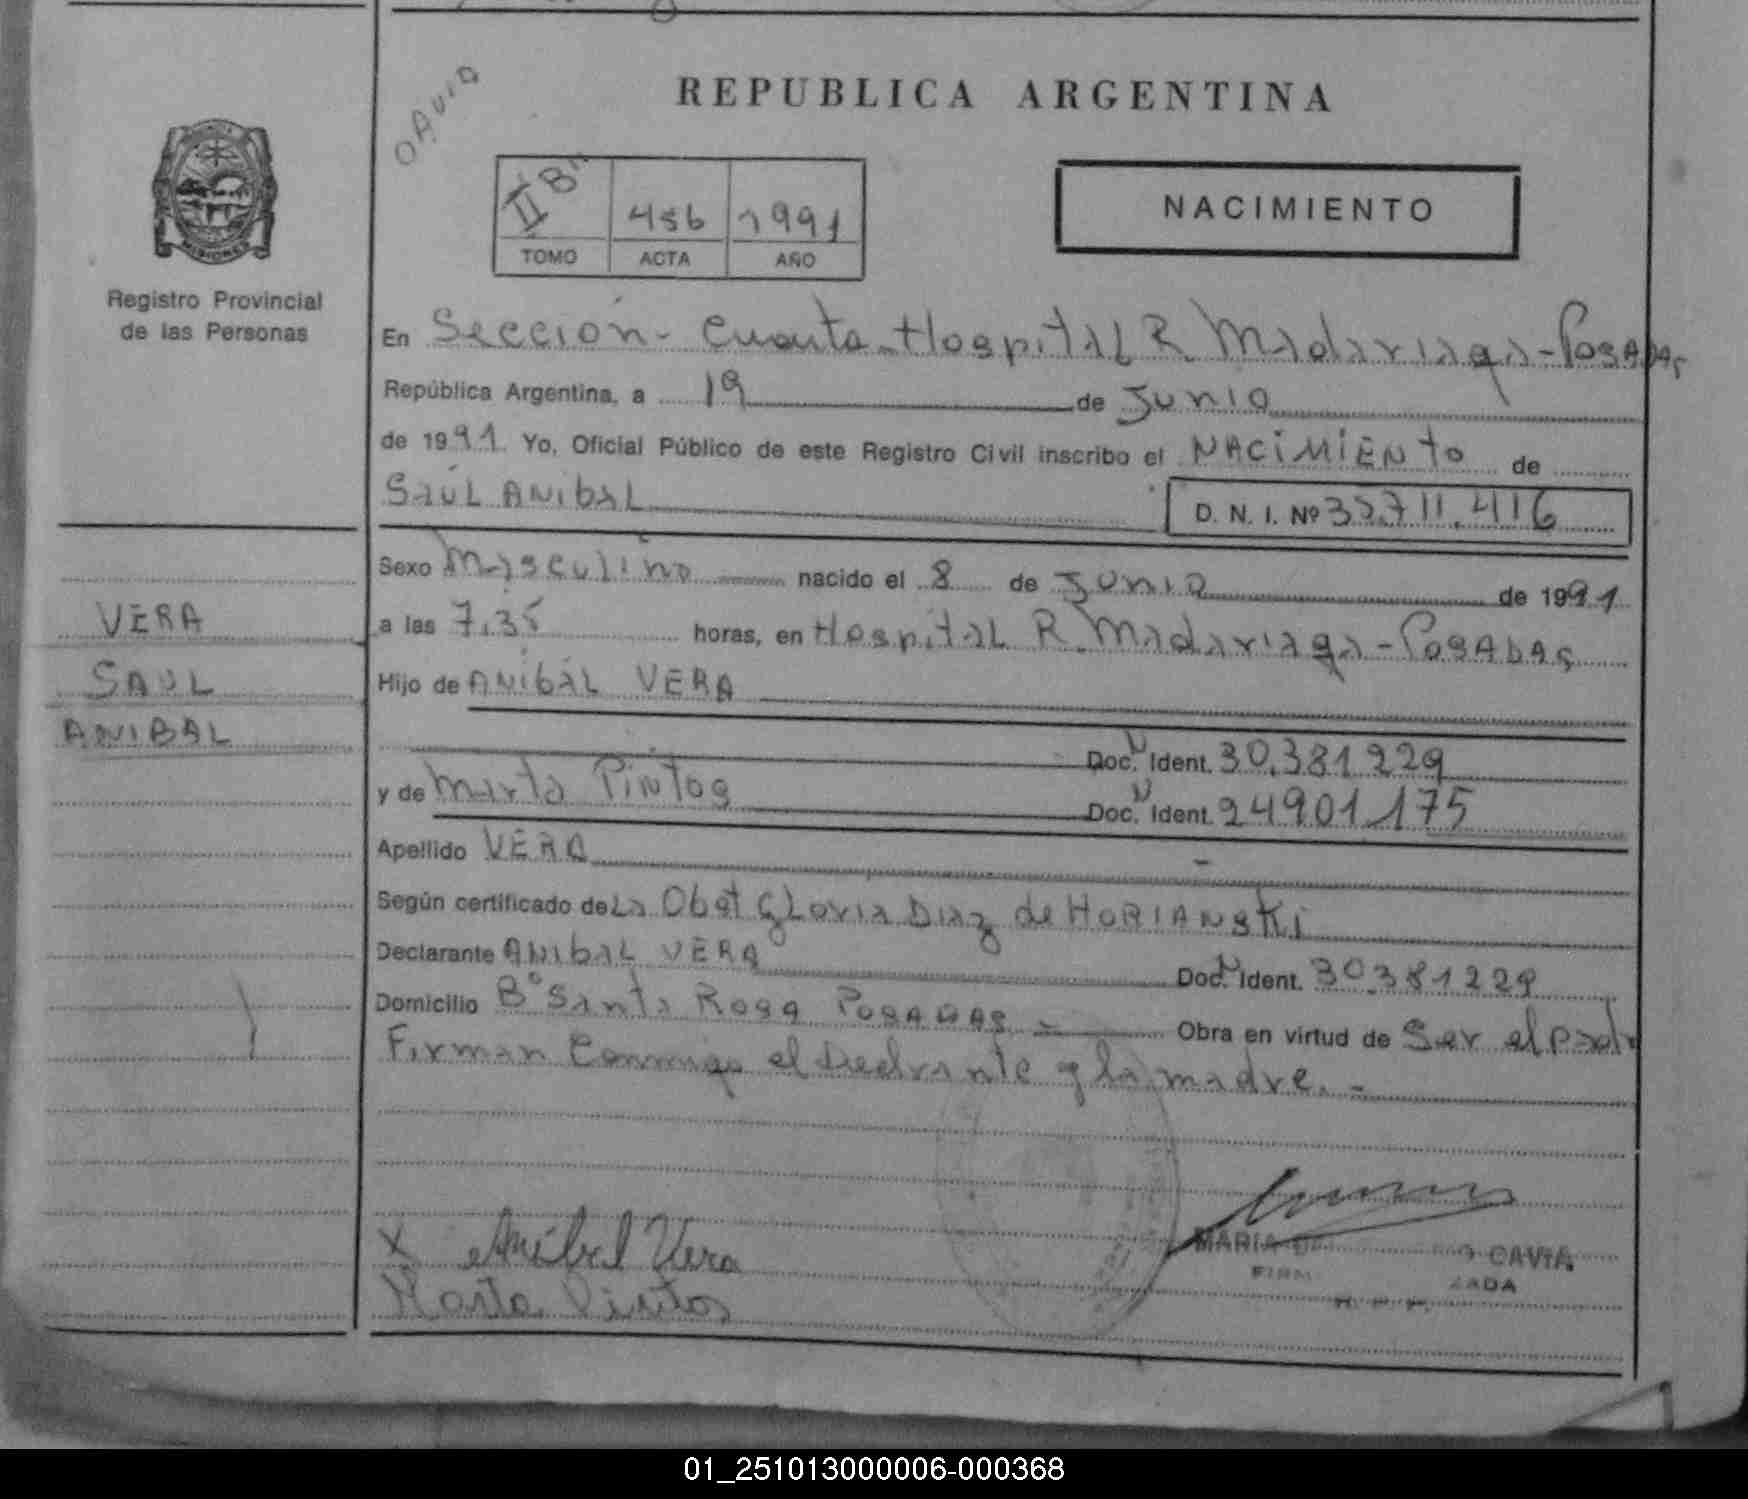 REPUBLICA ARGENTINA
OAVIA
II Bis 456 1991
TOMO ACTA AÑO
NACIMIENTO
MISIONES
Registro Provincial
de las Personas
En Sección - Cuarta - Hospital R Madariaga - Posadas
República Argentina, a 19 de Junio
de 1991 Yo, Oficial Público de este Registro Civil inscribo el NACIMIENTO de
SAÚL ANIBAL D. N. I. Nº 35.711.416
Sexo Masculino nacido el 8 de Junio de 1991
a las 7,35 horas, en Hospital R. Madariaga - Posadas
Hijo de ANIBAL VERA
Doc. N Ident. 30.381.229
y de Marta Pintos Doc. N Ident. 24901.175
Apellido VERA
Según certificado de La Obst Gloria Diaz de HORIANSKI
Declarante ANIBAL VERA Doc. N Ident. 30.381229
Domicilio Bº Santa Rosa Posadas - Obra en virtud de Ser el padre
Firman Conmigo el declarante y la madre. -
VERA
SAUL
ANIBAL
X Anibal Vera
Marta Pintos
MARIA CAVIA